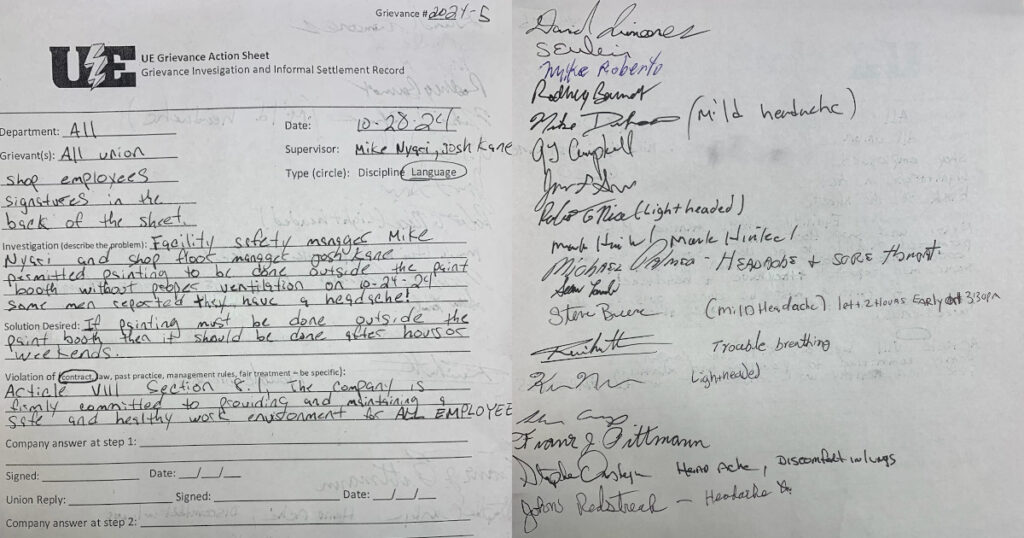 Grievance #2024-5
UE
UE Grievance Action Sheet
Grievance Investigation and Informal Settlement Record
Department: All
Date: 10-28-24
Grievant(s): All union
Supervisor: Mike Nygri, Josh Kane
shop employees
Type (circle): Discipline Language
signatures in the
back of the sheet.
Investigation (describe the problem): Facility safety manager Mike
Nygri and shop floor manager Josh Kane
permitted painting to be done outside the paint
booth without proper ventilation on 10-24-24
some men reported they have a headache!
Solution Desired: If painting must be done outside the
paint booth then it should be done after hours or
weekends.
Violation of (contract, law, past practice, management rules, fair treatment – be specific):
Article VIII Section 8.1. The company is
firmly committed to providing and maintaining a
safe and healthy work environment for ALL EMPLOYEE
Company answer at step 1:
Signed: Date: __/__/__
Union Reply: Signed: Date: __/__/__
Company answer at step 2:
David
Mike Roberto
Rodney
Mike (Mild headache)
AJ Campbell
(Lightheaded)
Mark
Michael - HEADACHE & SORE THROAT.
Steve (Mild Headache) left 2 Hours Early 3:30pm
Trouble breathing
Lightheaded
Franz J Pittmann
Head Ache, Discomfort in lungs
John Redstreak — Headache